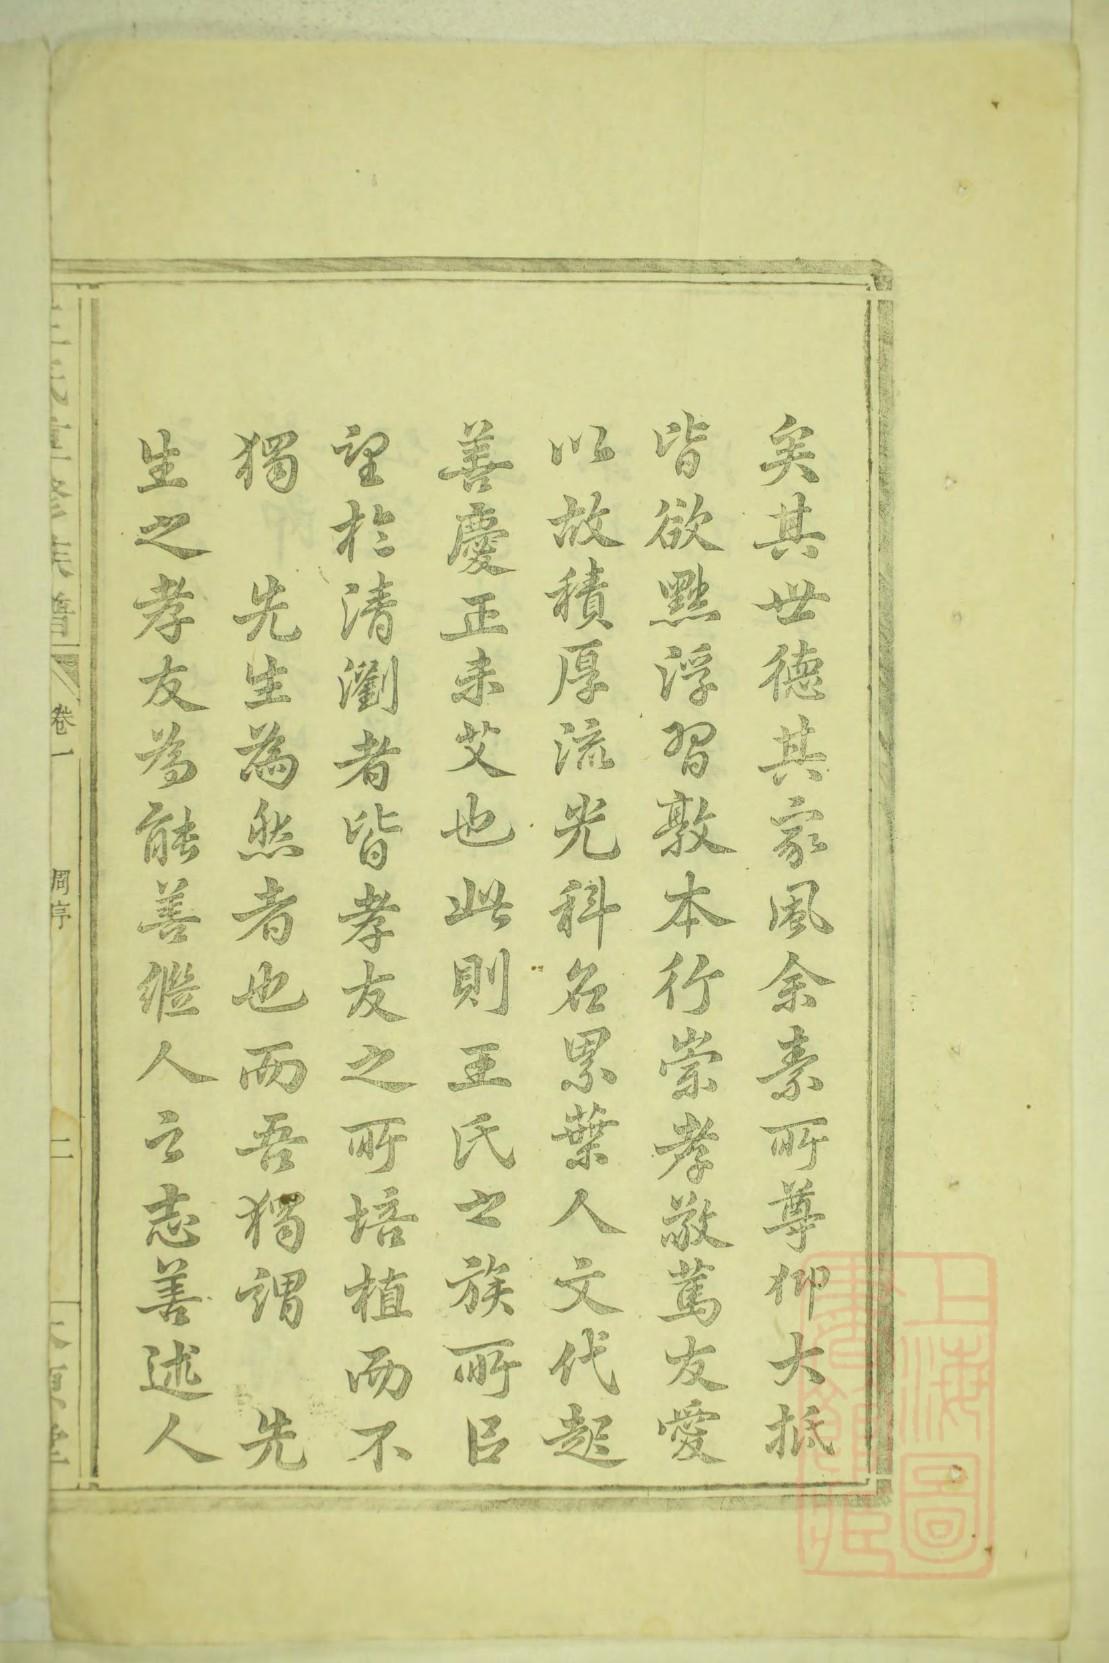 矣其世德其家風余素所尊仰大抵
皆欲黜浮習敦本行崇孝敬篤友愛
以故積厚流光科名累葉人文代起
善慶正未艾也此則王氏之族所㠯
望於清瀏者皆孝友之所培植而不
獨　先生為然者也而吾獨謂　先
生之孝友為能善繼人之志善述人
氏重修族譜
卷一
周序
二
上海圖
書館藏